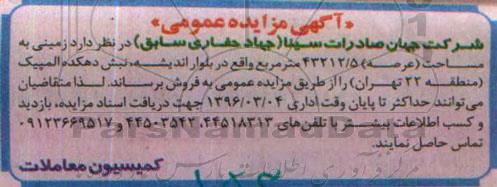 «آگهی مزایده عمومی»
شرکت جهان صادرات سینا (جهاد حفاری سابق) در نظر دارد زمینی به
مساحت (عرصه) ۴۳۲۱۲/۵ مترمربع واقع در بلوار اندیشه، نبش دهکده المپیک
(منطقه ۲۲ تهران) را از طریق مزایده عمومی به فروش برساند. لذا متقاضیان
می‌توانند حداکثر تا پایان وقت اداری ۱۳۹۶/۰۳/۰۴ جهت دریافت اسناد مزایده، بازدید
و کسب اطلاعات بیشتر با تلفن‌های ۴۴۵۱۸۳۱۳، ۴۴۵۰۳۵۴۳ و ۰۹۱۲۳۶۶۹۵۱۷
تماس حاصل نمایند.
کمیسیون معاملات
ParsNamadData